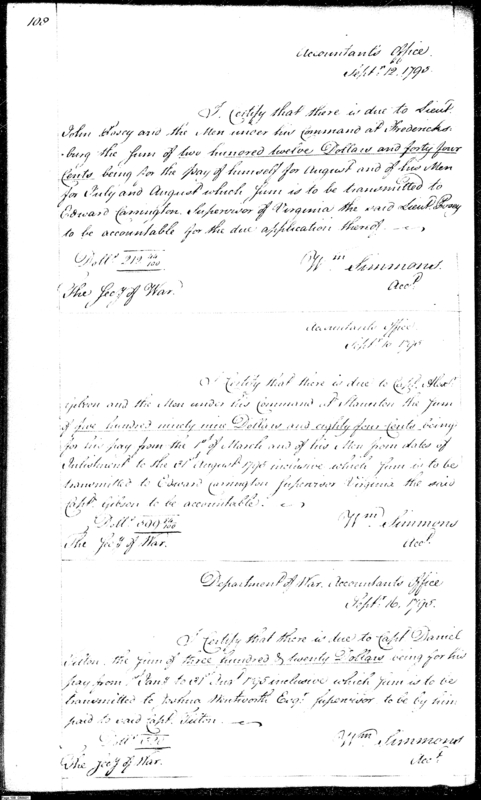 108
Accountant's Office
Sept. 12. 1795
I Certify that there is due to Lieut.
John Posey and the Men under his Command at Fredericks-
burg the Sum of two hundred twelve Dollars and forty four
Cents. being for the pay of himself for August and of his Men
for July and August which Sum is to be transmitted to
Edward Carrington. Supervisor of Virginia the said Lieut. Posey
to be accountable for the due application thereof.
Doll.s 212 44/100
Wm Simmons
Acct.
The Secy. of War.
Accountants Office
Sept. 1795
I Certify that there is due to Capt. Alexr.
Gibson and the Men under his Command at Staunton the Sum
of five hundred ninety nine Dollars and eighty four Cents. being
for his pay from the 1st of March and of his Men from dates of
Inlistment to the 31st August 1795 inclusive which Sum is to be
transmitted to Edward Carrington Supervisor Virginia the said
Capt. Gibson to be accountable.
Doll.s 599 84/100
Wm Simmons
Acct.
The Secy. of War.
Department of War. Accountants Office
Sept. 16. 1795.
I Certify that there is due to Capt. Daniel
Tilton. the Sum of three hundred & twenty Dollars being for his
pay from 1st Jany. to 31st 1795 inclusive which Sum is to be
transmitted to Joshua Wentworth Esqr. Supervisor to be by him
paid to said Capt. Tilton.
Doll.s 320
Wm Simmons
Acct.
The Secy. of War.